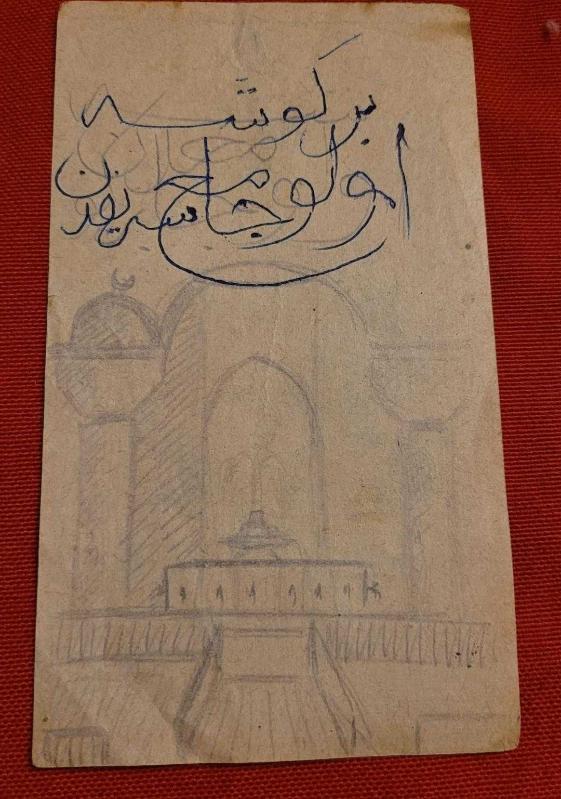 بر كوشه
اولو جامع شريفدن